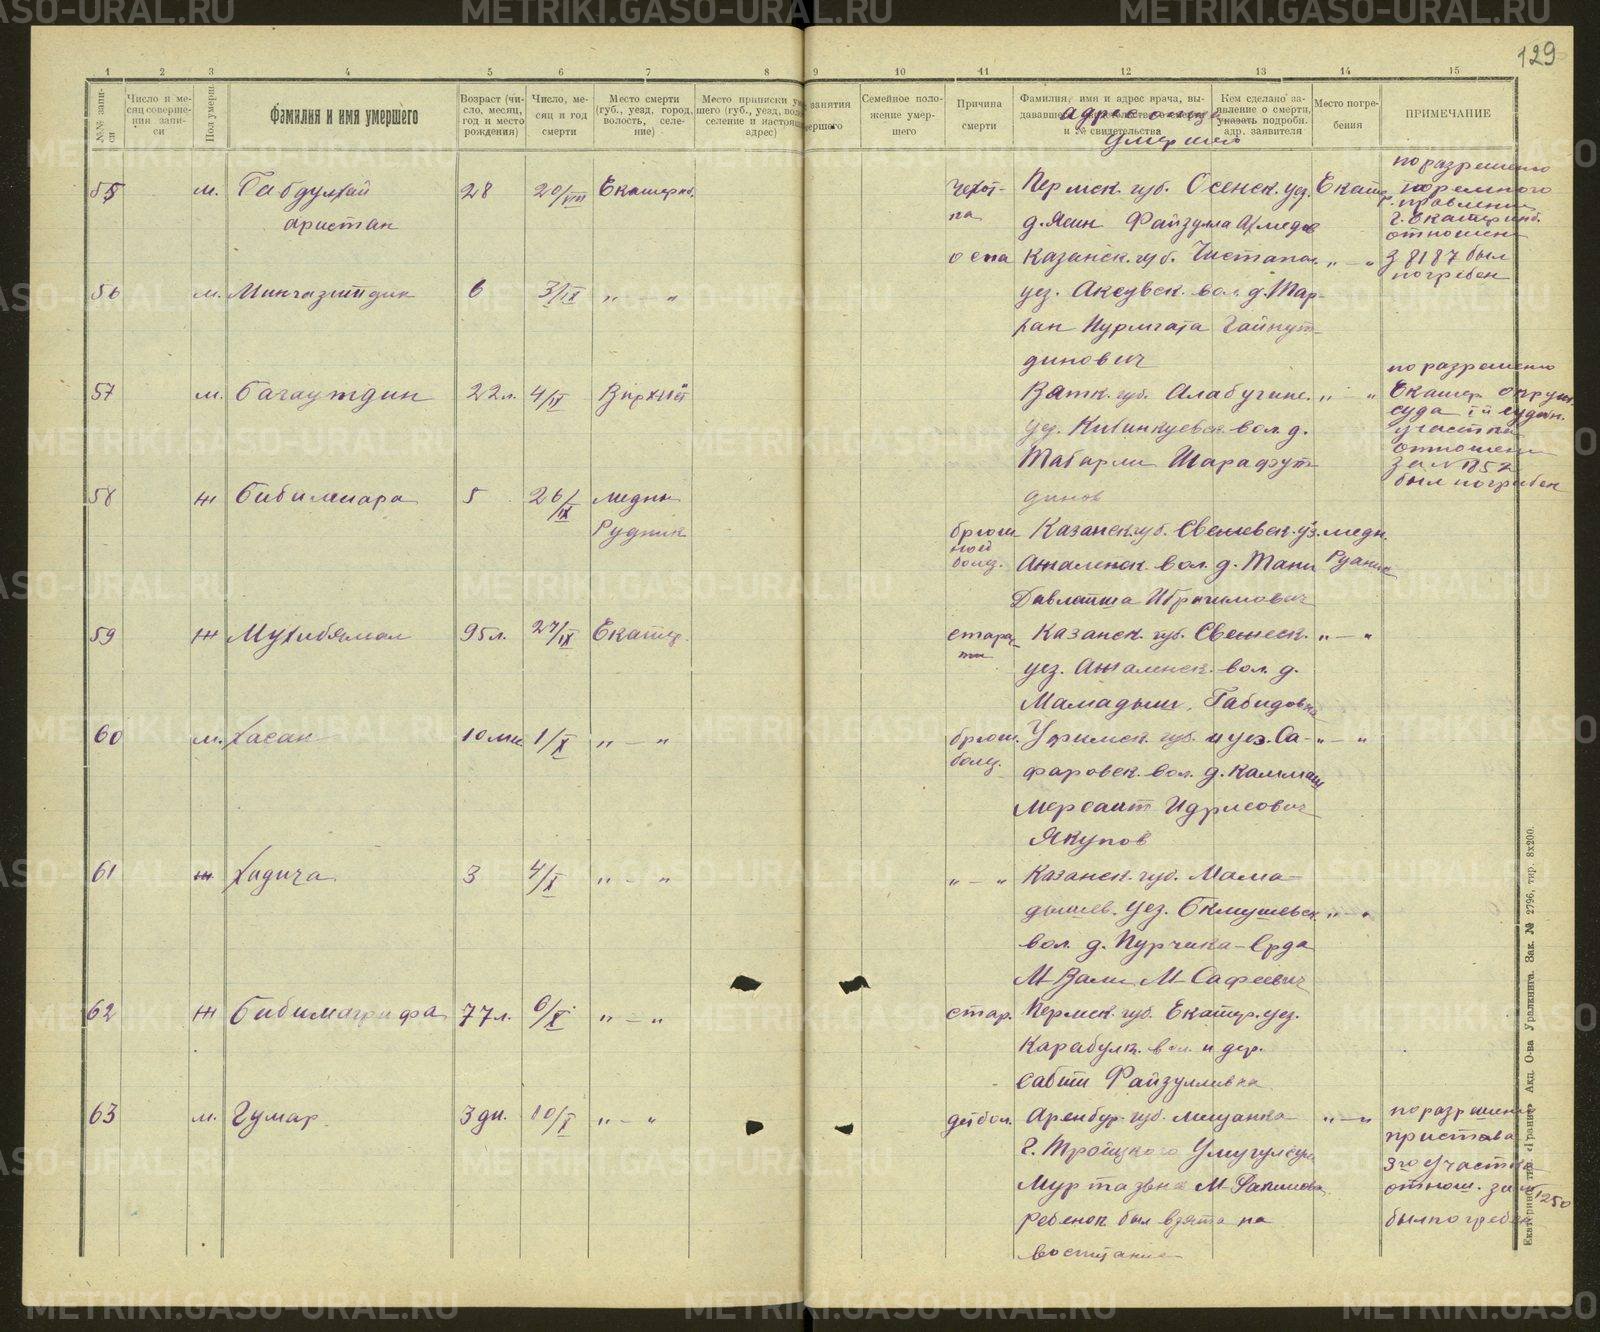 129
1 2 3 4 5 6 7 8 9 10 11 12 13 14 15
№№ записи
Число и месяц совершения записи
Пол умерш.
Фамилия и имя умершего
Возраст (число, месяц, год и место рождения)
Число, месяц и год смерти
Место смерти (губ., уезд, город, волость, селение)
Место приписки
занятия
Семейное положение умершего
Причина смерти
Фамилия, имя и адрес врача,
и № свидетельства
адрес
умершего
Кем сделано заявление о смерти, указать подробн. адр. заявителя
Место погребения
ПРИМЕЧАНИЕ
55 м. Габдулхай
аристан
28 20/VIII Екатеринб.
Чехот-
ка
Пермск. губ. Осенск. уез.
д. Ясин Файзулла Ахмедов
Екатер.
по разрешению
тюремного
правления
г. Екатеринб.
отношени
З 8187 был
погребен
56 м. Мингазитдин 6 3/IX „ — „
оспа Казанск. губ. Чистапол. „ — „
уез. Аксувск. вол. д. Тар-
хан Нурмгата Гайнут-
динович
57 м. Багаутдин 22 л. 4/IX Верхнет
Вятк. губ. Алабугинс. „ — „
уез. Кибинкуевск. вол. д.
Табарли Шарафут
динов
по разрешению
Екатер. окруж.
суда I й судебн.
участка
отношени
за № 1852
был погребен
58 ж Бибишара 5 26/IX медны
Рудник
брюш
ной
болез.
Казанск. губ. Свеяжевск. уз. медн.
Ажаленск. вол. д. Тани Рудник
Давлатша Ибрагимович
59 ж Мухибямал 95 л. 27/IX Екатер.
старос-
ти
Казанск. губ. Свеяжеск. „ — „
уез. Ажаленск. вол. д.
Мамадыш. Габидовна
60 м. Хасан 10 мес 1/X „ — „
брюш.
болез.
Уфимск. губ. и уез. Са- „ — „
фаровск. вол. д. Калмаш
Мерсаит Идрисович
Якупов
61 ж Хадича 3 4/X „ — „
„ — „ Казанск. губ. Мама-
дышев. уез. Кмушевск. „ — „
вол. д. Нурчика-Ерда
М-Вали М-Сафеевич
62 ж Бибимагрифа 77 л. 6/X „ — „
стар. Пермск. губ. Екатер. уез.
Карабулк. вол. и дер.
Сабит Файзулливна
63 м. Гумар 3 дн. 10/X „ — „
дет бол. Аренбур губ. мещанка „ — „
г. Тройцкого Умугулсум
Муртазвна М-Рахимова
ребенок был взята на
воспитание
по разрешени
пристава
3го участка
отнош. за № 1250
был погребен
Екатеринб. тип. «Гранит» Акд. О-ва Уралкнига. Зак. № 2796, тир. 8x200.
METRIKI.GASO-URAL.RU